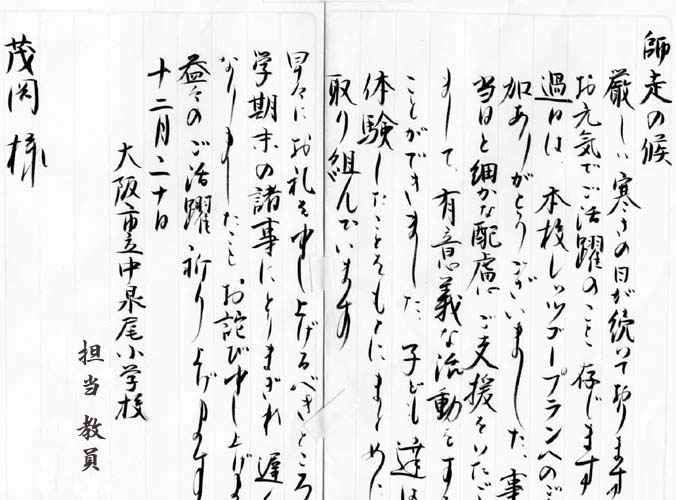 師走の候
厳しい寒さの日が続いております
お元気でご活躍のこと存じます
過日は、本校レッツゴープランへのご
加ありがとうございました。事
当日と細かな配慮、ご支援をいただ
まして、有意義な活動をする
ことができました。子ども達は
体験したことをもとにまとめに
取り組んでいます
早々にお礼を申し上げるべきところ
学期末の諸事にとりまぎれ遅く
なりましたことお詫び申し上げま
益々のご活躍祈り上げます
十二月二十日
大阪市立中泉尾小学校
担当教員
茂岡様